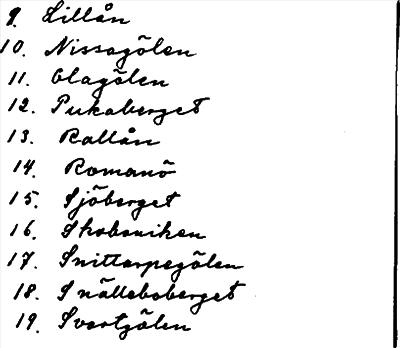 9. Lillån
10. Nissagölen
11. Olagölen
12. Pukaberget
13. Rallån
14. Romanö
15. Sjöberget
16. Skoboviken
17. Snittarpegölen
18. Snälleboberget
19. Svartgölen